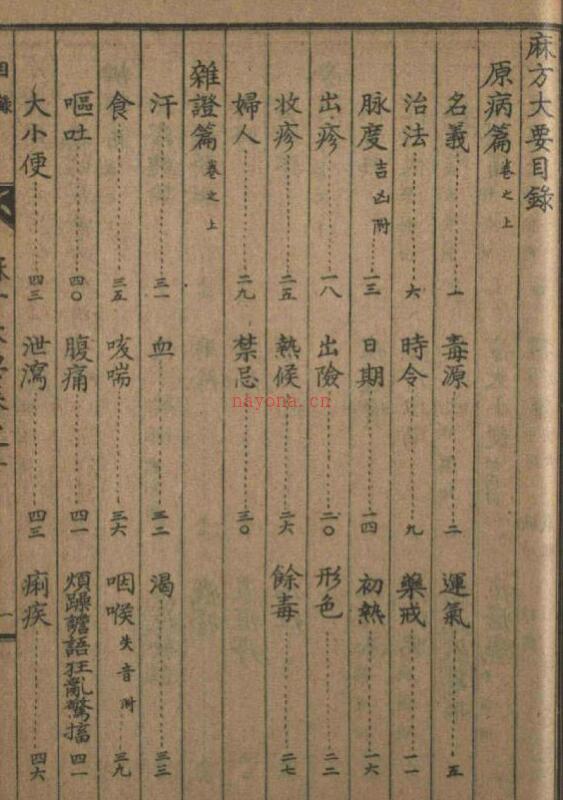 麻方大要目錄
原病篇 卷之上
名義 一 毒源 二 運氣 五
治法 六 時令 九 藥戒 一一
脉度 吉凶附 一三 日期 一四 初熱 一六
出疹 一八 出險 二〇 形色 二二
收疹 二五 熱候 二六 餘毒 二七
婦人 二九 禁忌 三〇
雜證篇 卷之上
汗 三一 血 三二 渴 三三
食 三五 咳喘 三六 咽喉 失音附 三九
嘔吐 四〇 腹痛 四一 煩躁譫語狂亂驚搐 四一
大小便 四三 泄瀉 四三 痢疾 四六
目錄
一
nayona.cn